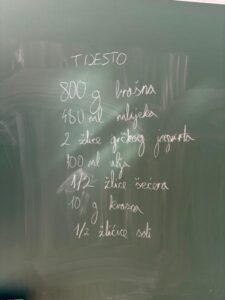 TIJESTO
800 g brašna
480 ml mlijeka
2 žlice grčkog jogurta
100 ml ulja
1/2 žlice šećera
10 g kvasna
1/2 žličice soli